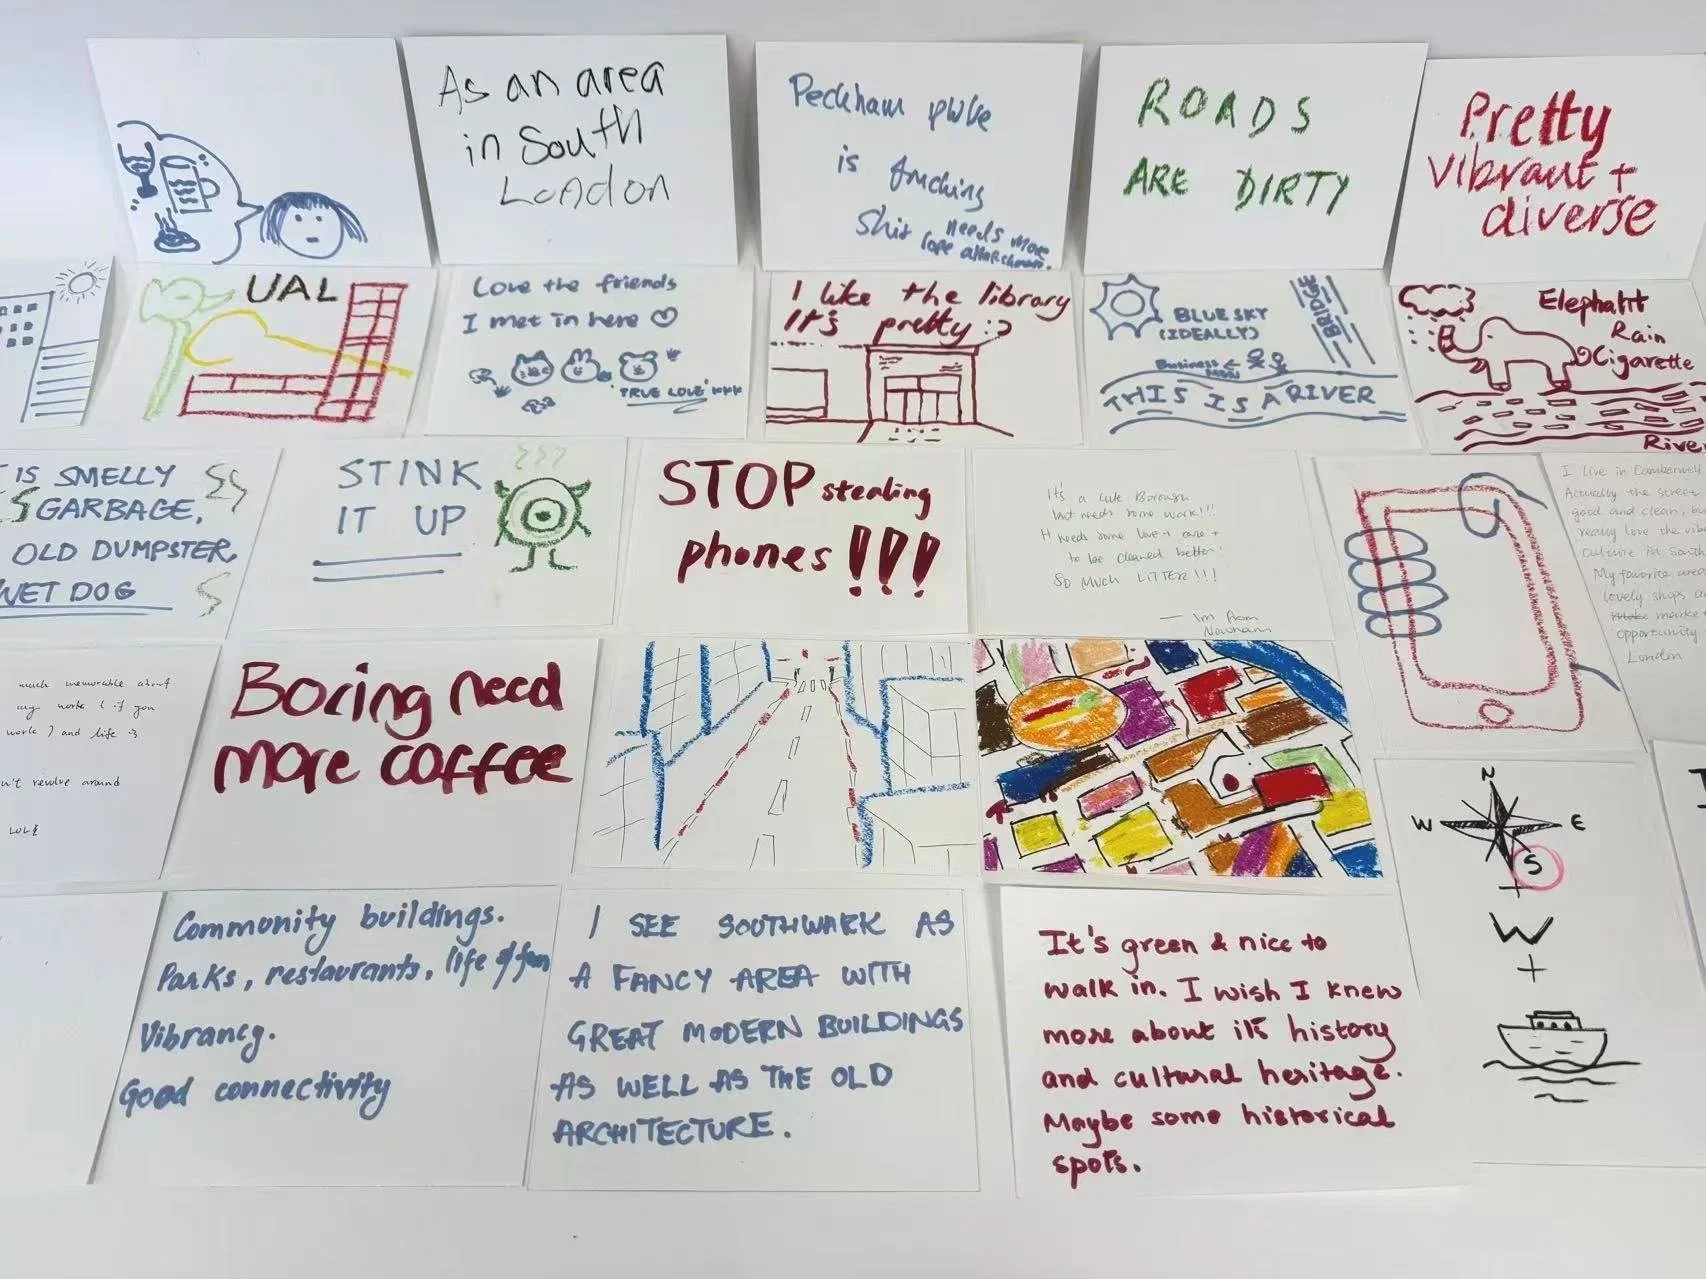 As an area
in South
London
Peckham
is fucking
shit needs more
ROADS
ARE DIRTY
Pretty
vibrant +
diverse
UAL
Love the friends
I met in here ♡
TRUE LOVE
I like the library
It's pretty :)
BLUE SKY
(IDEALLY)
BRIDGE
Business ←
MAN
THIS IS A RIVER
Elephant
Rain
Cigarette
River
IS SMELLY
GARBAGE,
OLD DUMPSTER,
WET DOG
STINK
IT UP
STOP stealing
phones !!!
It's a cute Borough
but needs some work!!!
It needs some love + care +
to be cleaned better!
SO MUCH LITTER!!!
— Im from
Newham
I live in Camberwell
Actually the street
good and clean, bu
really love the vib
culture in South
My favorite area
lovely shops
market
opportunity
London
much memorable about
my work (if you
work) and life is
n't revolve around
LOL
Boring need
more coffee
N
W E
S
+
W
+
Community buildings.
Parks, restaurants, life
Vibrancy.
Good connectivity
I SEE SOUTHWARK AS
A FANCY AREA WITH
GREAT MODERN BUILDINGS
AS WELL AS THE OLD
ARCHITECTURE.
It's green & nice to
walk in. I wish I knew
more about its history
and cultural heritage.
Maybe some historical
spots.